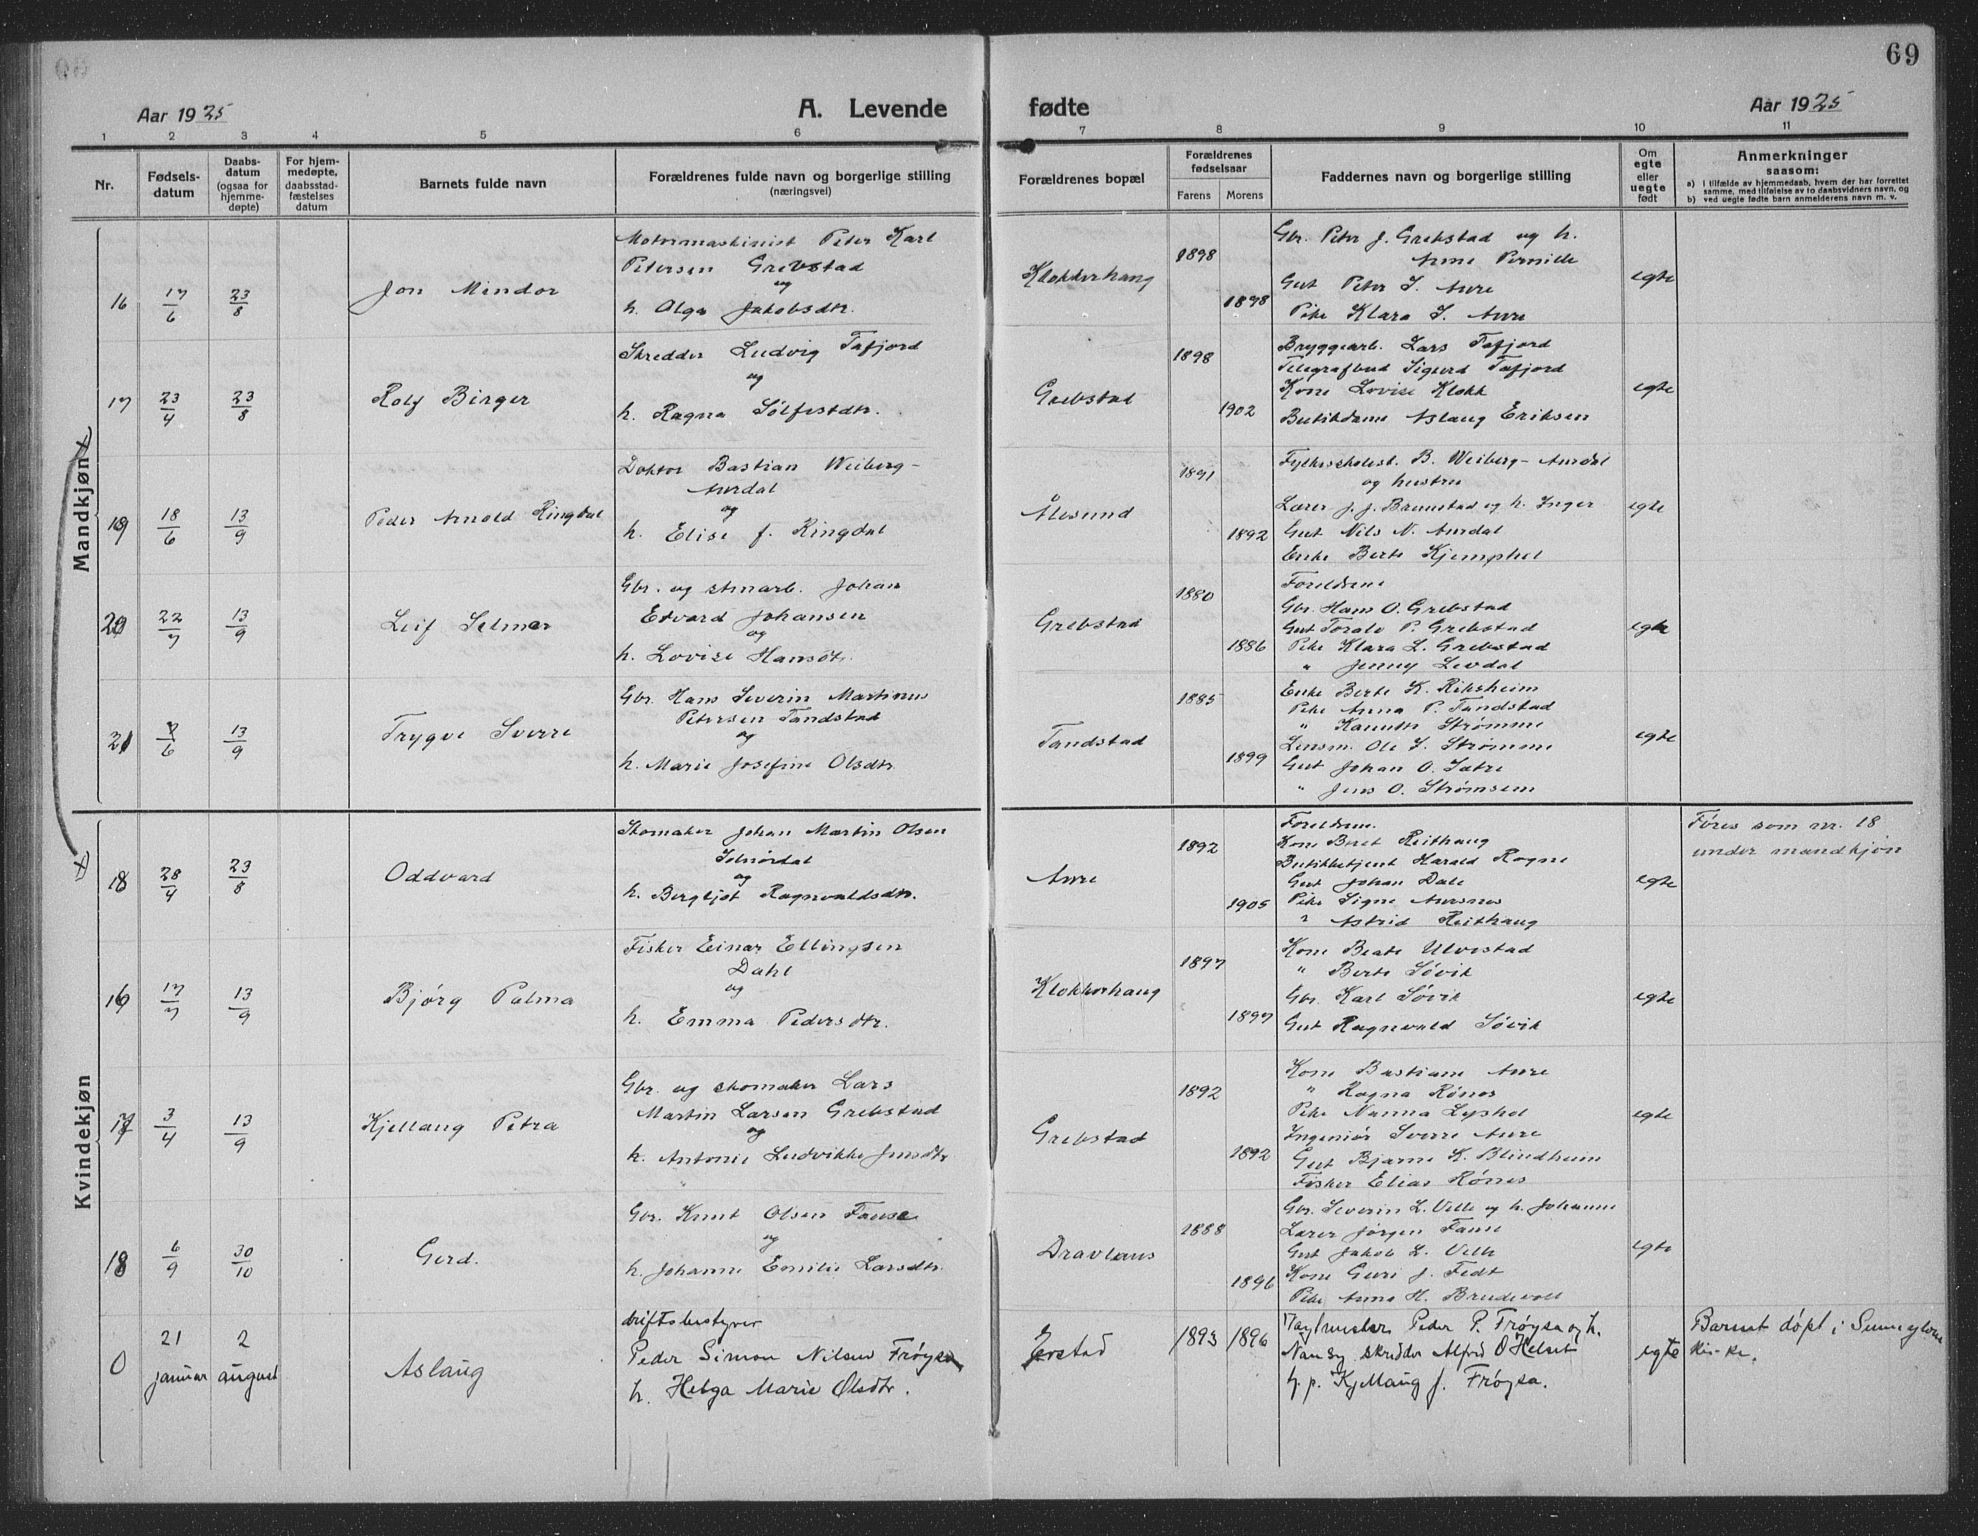 69
Aar 1925
A. Levende fødte
Aar 1925
1 2 3 4 5 6 7 8 9 10 11
Nr.
Fødsels-
datum
Daabs-
datum
(ogsaa for
hjemme-
døpte)
For hjem-
medøpte,
daabsstad-
fæstelses
datum
Barnets fulde navn
Forældrenes fulde navn og borgerlige stilling
(næringsvei)
Forældrenes bopæl
Forældrenes
fødselsaar
Farens Morens
Faddernes navn og borgerlige stilling
Om
egte
eller
uegte
født
Anmerkninger
saasom:
a) i tilfælde av hjemmedaab, hvem der har forrettet
samme, med tilføielse av to daabsvidners navn, og
b) ved uegte fødte barn anmelderens navn m. v.
Mandkjøn
16 17/6 23/8 Jon Mindor
Motormaskinist Peter Karl
Petersen Grebstad
og
h. Olga Jakobsdtr.
Klokkerhaug
1898
1898
Gbr. Peter J. Grebstad og h.
Anne Pernille
Gut Peter I. Aure
Pike Klara I. Aure
egte
17 23/4 23/8 Rolf Birger
Skredder Ludvig Tafjord
og
h. Ragna Sølfestdtr.
Grebstad
1898
1902
Bryggearb. Lars Tafjord
Telegrafbud Sigurd Tafjord
Kone Lovise Klokk
Butikdame Aslaug Eriksen
egte
19 18/6 13/9 Peder Arnold Ringdal
Doktor Bastian Weiberg-
Aurdal
og
h. Elise f. Ringdal
Ålesund
1891
1892
B. Weiberg-Aurdal
og hustru
Lærer J. J. Brunstad og h. Inger
Gut Nils N. Aurdal
Enke Berte Kjemphol
egte
20 22/7 13/9 Leif Selmer
Gbr. og stenarb. Johan
Edvard Johansen
og
h. Lovise Hansdtr.
Grebstad
1880
1886
Foreldrene
Gbr. Hans O. Grebstad
Gut Toralv P. Grebstad
Pike Klara L. Grebstad
" Jenny Levdal
egte
21 13/9 Trygve Sverre
Gbr. Hans Severin Martinus
Petersen Tandstad
og
h. Marie Josefine Olsdtr.
Tandstad
1885
1899
Enke Berte K. Riksheim
Pike Anna P. Tandstad
" Strømme
Lensm. Ole I. Strømme
Gut Johan O. Sætre
" Jens O. Strømsem
egte
Kvindekjøn
18 28/4 23/8 Oddvard
Skomaker Johan Martin Olsen
og
h. Bergljot Ragnvaldsdtr.
Aure
1892
1905
Foreldrene.
Kone Beret Reithaug
Butikbetjent Harald Rogne
Gut Johan Dale
Pike Signe Aursnes
" Astrid Reithaug
egte
Føres som nr. 18
under mandkjøn
16 17/7 13/9 Bjørg Palma
Fisker Einar Ellingsen
Dahl
og
h. Emma Pedersdtr.
Klokkerhaug
1897
1897
Kone Beate Ulvestad
" Berte Søvik
Gbr. Karl Søvik
Gut Ragnvald Søvik
egte
17 3/4 13/9 Kjellaug Petra
Gbr. og skomaker Lars
Martin Larsen Grebstad
og
h. Antonie Ludvikke Jensdtr.
Grebstad
1892
1892
Kone Bastiane Aure
" Ragna Rønes
Pike Nanna Lyshol
Ingeniør Sverre Aure
Gut Bjarne K. Blindheim
Fisker Elias Rønes
egte
18 6/9 30/10 Gerd.
Gbr. Knut Olsen Fause
og
h. Johanne Emilie Larsdtr.
Dravlaus
1888
1896
Gbr. Severin L. Velle og h. Johanne
Lærer Jørgen Fause
Gut Jakob L. Velle
Kone Guri J. Fedt
Pike Anna H. Brudevoll
egte
0 21 januar 2 august Aslaug
driftsbestyrer
Peder Simon Nilsen Frøysa
h. Helga Marie Olsdtr.
1893 1896
Peder P. Frøysa og h.
Nansy. skredder Alfred O Helset
p. Kjellaug J. Frøysa.
egte
Barnet døpt i Sunnylven
kirke.